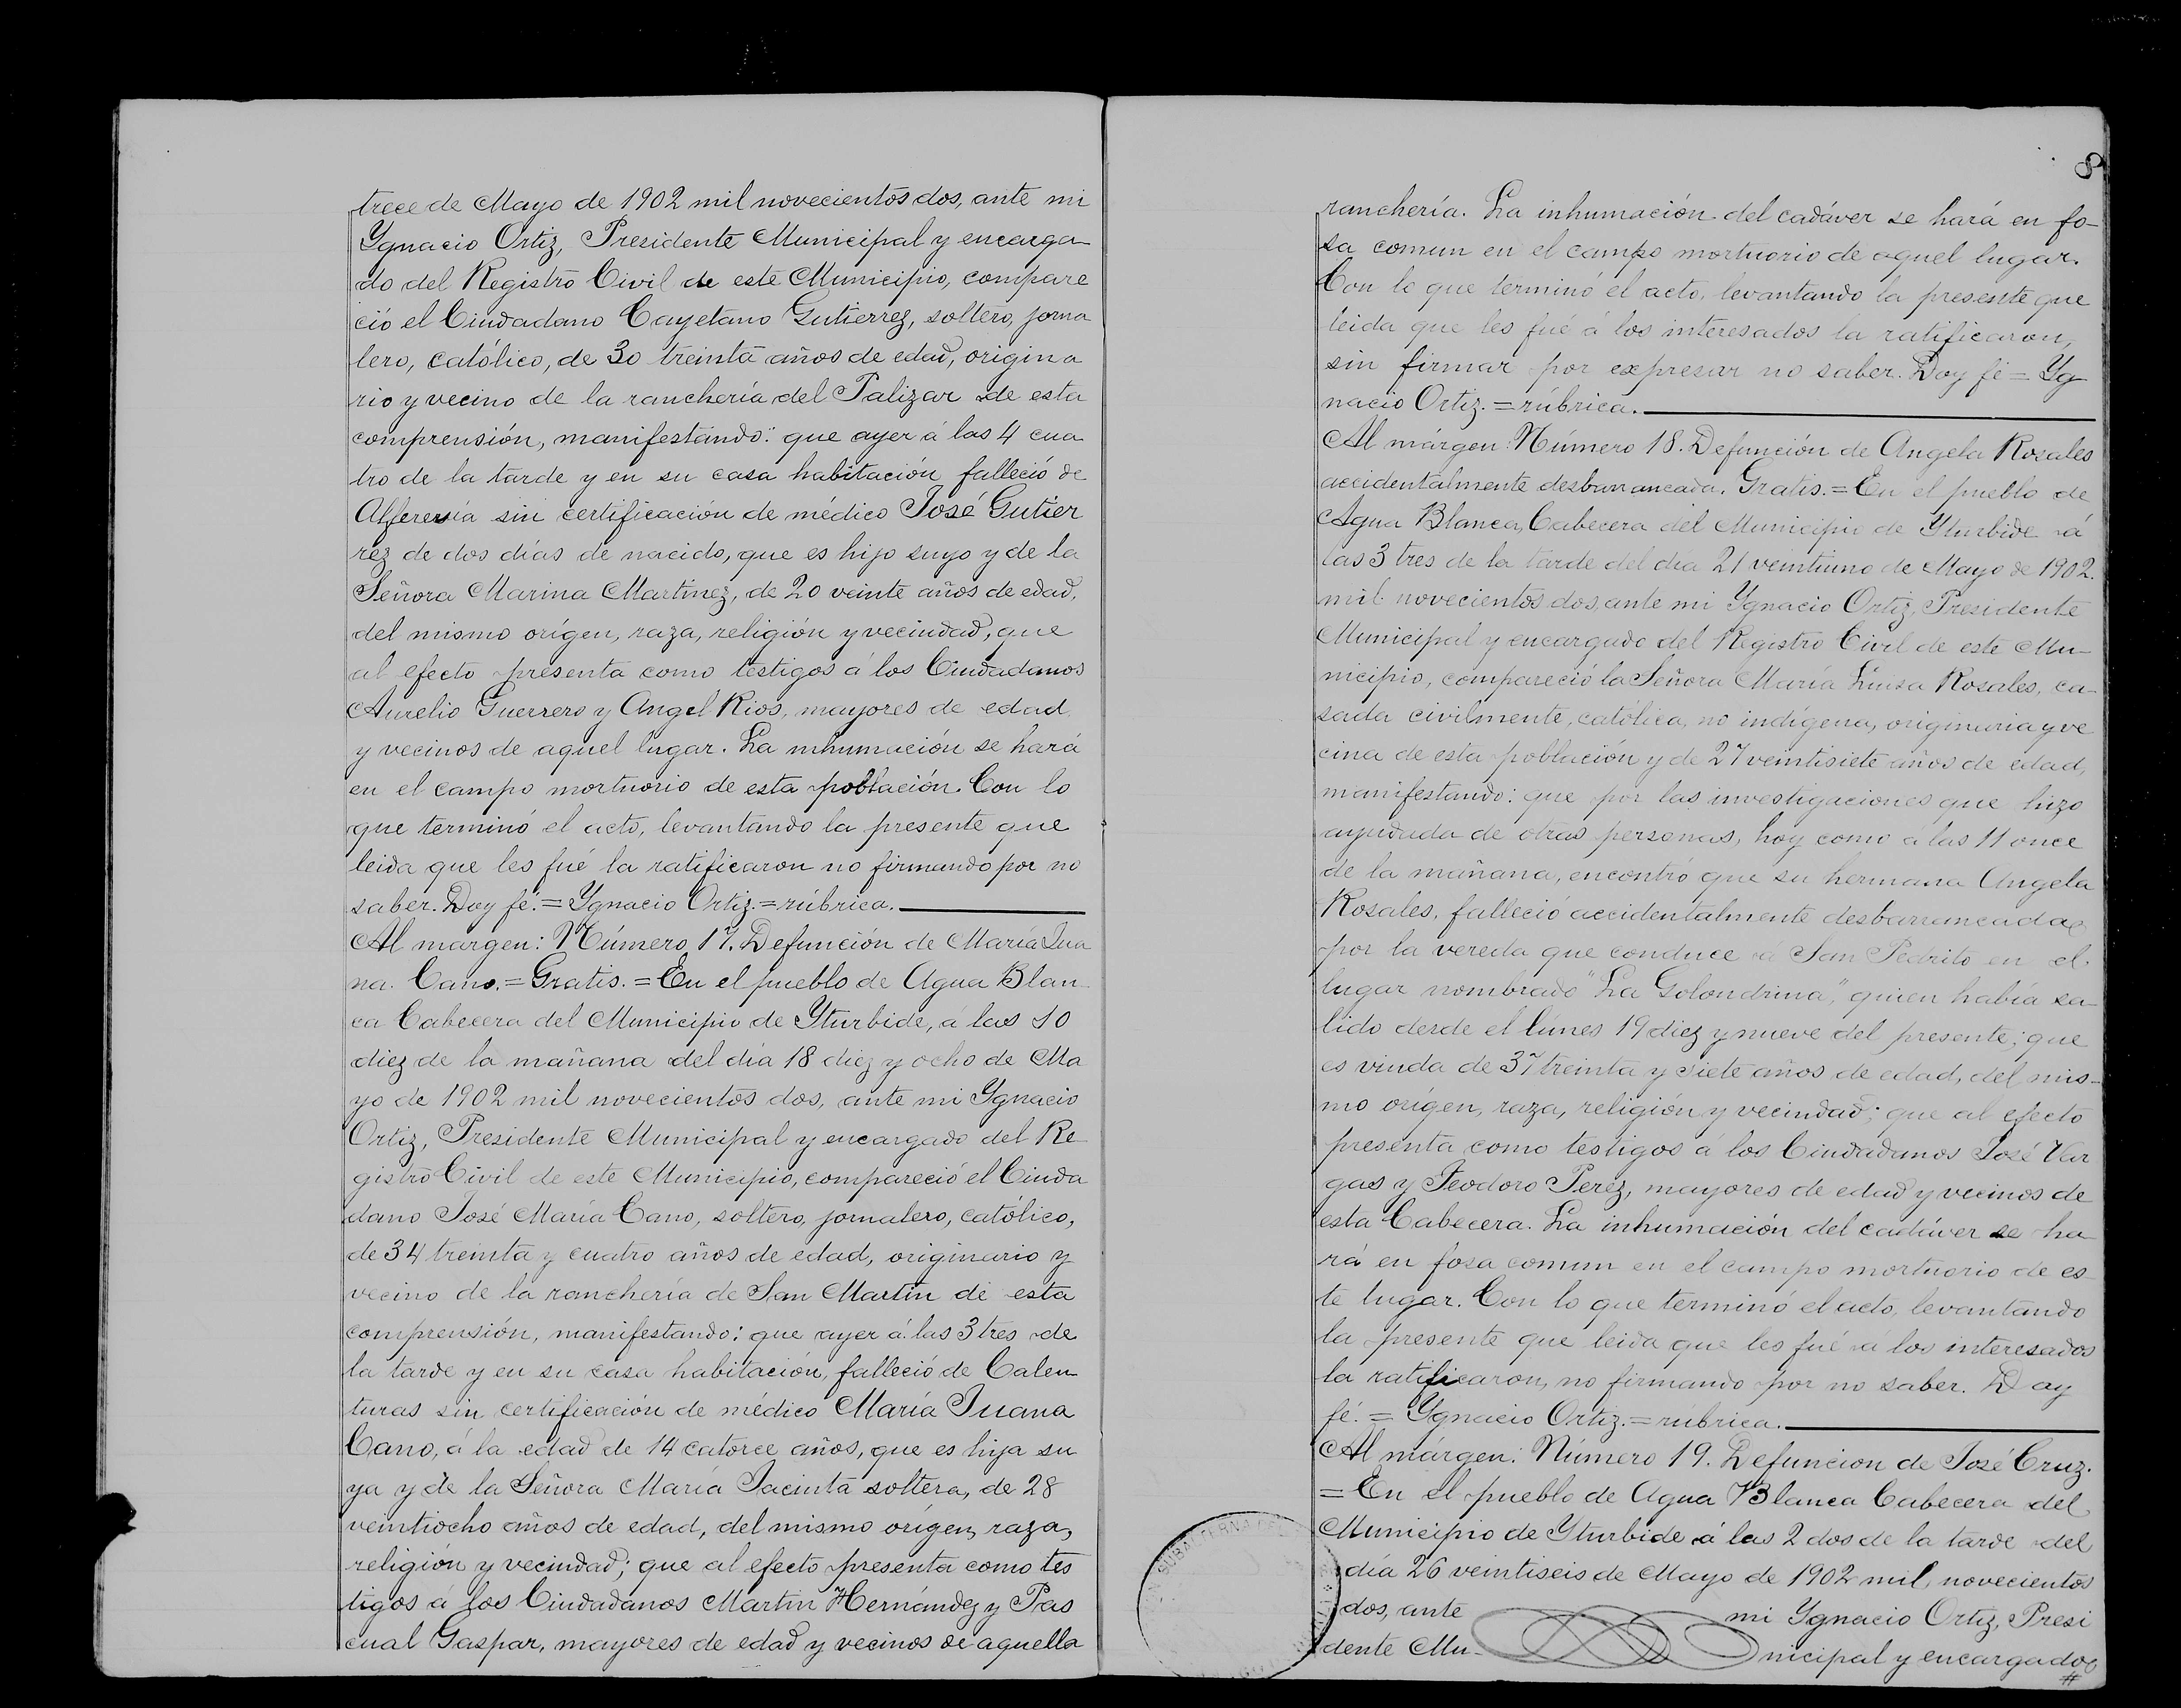 trece de Mayo de 1902 mil novecientos dos, ante mi
Ygnacio Ortiz, Presidente Municipal y encarga
do del Registro Civil de este Municipio, compare
ció el Ciudadano Cayetano Gutierrez, soltero, jorna
lero, católico, de 30 treinta años de edad, origina
rio y vecino de la ranchería del Palizar de esta
comprensión, manifestando: que ayer á las 4 cua
tro de la tarde y en su casa habitación falleció de
Alferesía sin certificación de médico José Gutier
rez de dos días de nacido, que es hijo suyo y de la
Señora Marina Martinez, de 20 veinte años de edad,
del mismo orígen, raza, religión y vecindad, que
al efecto presenta como testigos á los Ciudadanos
Aurelio Guerrero y Angel Rios, mayores de edad
y vecinos de aquel lugar. La inhumación se hará
en el campo mortuorio de esta población. Con lo
que terminó el acto, levantando la presente que
leida que les fué la ratificaron no firmando por no
saber. Doy fé. = Ygnacio Ortiz. = rúbrica.
Al margen: Número 17. Defunción de María Jua
na. Cano. = Gratis. = En el pueblo de Agua Blan
ca Cabecera del Municipio de Yturbide, á las 10
diez de la mañana del día 18 diez y ocho de Ma
yo de 1902 mil novecientos dos, ante mi Ygnacio
Ortiz, Presidente Municipal y encargado del Re
gistro Civil de este Municipio, compareció el Ciuda
dano José María Cano, soltero, jornalero, católico,
de 34 treinta y cuatro años de edad, originario y
vecino de la ranchería de San Martín de esta
comprensión, manifestando: que ayer á las 3 tres de
la tarde y en su casa habitación, falleció de Calen
turas sin certificación de médico María Juana
Cano, á la edad de 14 catorce años, que es hija su
ya y de la Señora María Jacinta soltera, de 28
veintiocho años de edad, del mismo orígen, raza,
religión y vecindad; que al efecto presenta como tes
tigos á los Ciudadanos Martin Hernández y Pas
cual Gaspar, mayores de edad y vecinos de aquella
8
ranchería. La inhumación del cadáver se hará en fo-
sa comun en el campo mortuorio de aquel lugar.
Con lo que terminó el acto, levantando la presente que
leida que les fué á los interesados la ratificaron,
sin firmar por expresar no saber. Doy fé = Yg
nacio Ortiz. = rúbrica.
Al márgen: Número 18. Defunción de Angela Rosales
accidentalmente desbarrancada. Gratis. = En el pueblo de
Agua Blanca, Cabecera del Municipio de Yturbide á
las 3 tres de la tarde del día 21 veintiuno de Mayo de 1902.
mil novecientos dos, ante mi Ygnacio Ortiz, Presidente
Municipal y encargado del Registro Civil de este Mu-
nicipio, compareció la Señora María Luisa Rosales, ca-
sada civilmente, católica, no indígena, originaria y ve
cina de esta población y de 27 veintisiete años de edad,
manifestando: que por las investigaciones que hizo
ayudada de otras personas, hoy como á las 11 once
de la mañana, encontró que su hermana Angela
Rosales, falleció accidentalmente desbarrancada
por la vereda que conduce á San Pedrito en el
lugar nombrado "La Golondrina", quien había sa-
lido desde el lúnes 19 diez y nueve del presente; que
es viuda de 37 treinta y siete años de edad, del mis-
mo orígen, raza, religión y vecindad; que al efecto
presenta como testigos á los Ciudadanos José Var
gas y Teodoro Perez, mayores de edad y vecinos de
esta Cabecera. La inhumación del cadáver se ha
rá en fosa comun en el campo mortuorio de es
te lugar. Con lo que terminó el acto, levantando
la presente que leida que les fué á los interesados
la ratificaron, no firmando por no saber. Doy
fé. = Ygnacio Ortiz. = rúbrica.
Al márgen: Número 19. Defuncion de José Cruz.
= En el pueblo de Agua Blanca Cabecera del
Municipio de Yturbide á las 2 dos de la tarde del
día 26 veintiseis de Mayo de 1902 mil novecientos
dos, ante mi Ygnacio Ortiz, Presi
dente Mu- nicipal y encargado
#
SUBALTERNA DEL